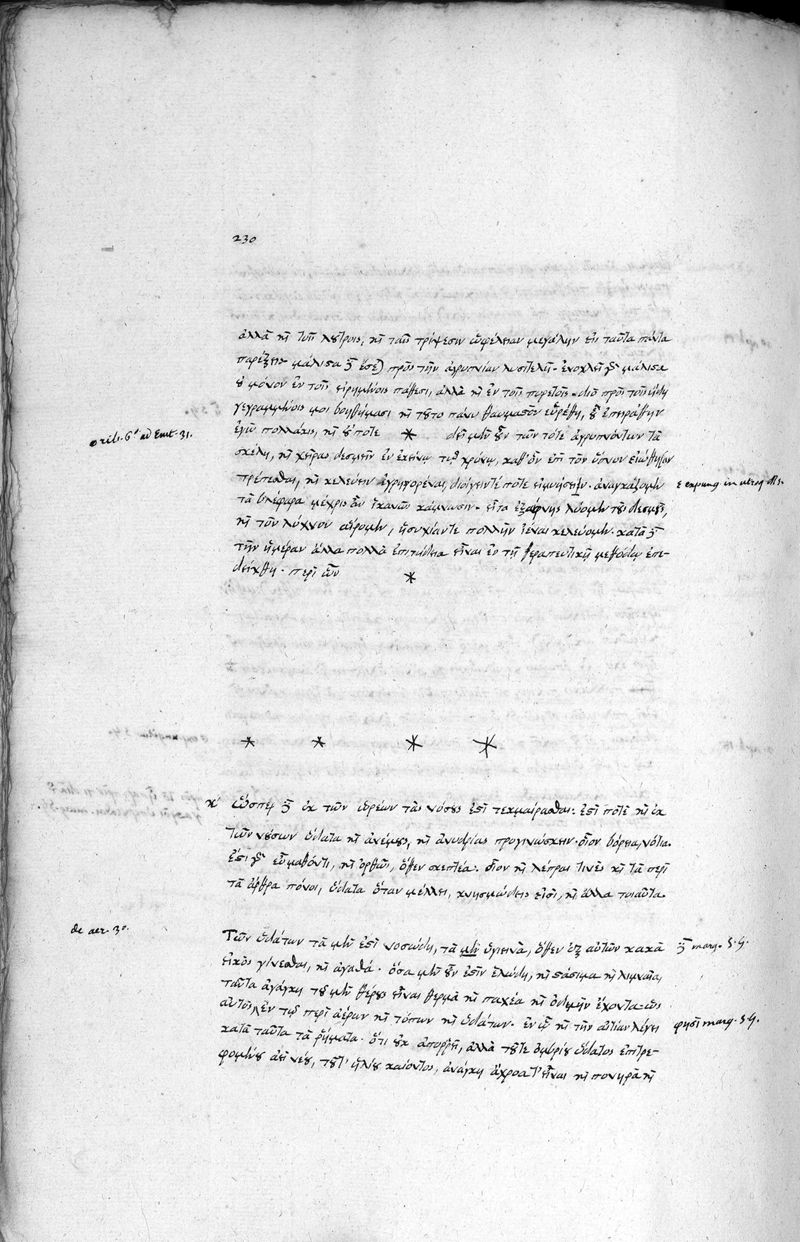 230
ἀλλὰ καὶ τοῖς λουτροῖς, καὶ ταῖς τρίψεσιν ὠφέλειαν μεγάλην εἰς ταῦτα πάντα
παρέξεις μάλιστα δὲ ἔσται πρὸς τὴν ἀγρυπνίαν λυσιτελῆ· ἐνοχλεῖ γὰρ μάλιστα
οὐ μόνον ἐν τοῖς εἰρημένοις πάθεσι, ἀλλὰ καὶ ἐν τοῖς πυρετοῖς· διὸ πρὸς τοῖς ἤδη
γεγραμμένοις μοι βοηθήμασι καὶ τοῦτο πάνυ θαυμαστὸν εὑρέθη, οὗ ἐπειράθην
orib. 6º ad Eunt. 31.
ἐγὼ πολλάκις, καὶ οὔποτε * δεῖ μὲν οὖν τῶν τότε ἀγρυπνούντων τὰ
σκέλη, καὶ χεῖρας δεσμεῖν ἐν ἐκείνῳ τῷ χρόνῳ, καθ' ὃν ἐπὶ τὸν ὕπνον εἰώθησαν
τρέπεσθαι, καὶ κελεύειν ἀγρηγορέναι, ἀναγκάζομεν
τὰ βλέφαρα μέχρις ἂν ἱκανῶς κάμνωσιν· εἶτα ἐξαίφνης λύομεν τοὺς δεσμοὺς,
καὶ τὸν λύχνον αἴρομεν, ἡσυχίαν τε πολλὴν εἶναι κελεύομεν· κατὰ δὲ
τὴν ἡμέραν ἄλλα πολλὰ ἐπιτήδεια εἶναι ἐν τῇ θεραπευτικῇ μεθόδῳ ἐπε-
δείχθη· περὶ ὧν *
* * * *
κʹ ὥσπερ δὲ ἐκ τῶν ὑδρέων τὰς νόσους ἐστὶ τεκμαίρασθαι· ἔστι ποτὲ καὶ ἐκ
τῶν νούσων ὕδατα καὶ ἀνέμους, καὶ ἀνυδρίας προγινώσκειν· οἷον βόρεια, νότια.
ἔστι γὰρ εὐμαθοῦντι, καὶ ὀρθῶς, ὅθεν σκεπτέα· οἷον καὶ λέπραι τινὲς καὶ τὰ περὶ
τὰ ἄρθρα πόνοι, ὕδατα ὅταν μέλλει, κνησμώδεις εἰσὶ, καὶ ἄλλα τοιαῦτα.
de aer. 30.
Τῶν ὑδάτων τὰ μὲν ἐστὶ νοσώδη, τὰ μὲν ὑγιεινὰ, ὅθεν ἀπ' αὐτῶν κακὰ
δὲ marg. S. G.
εἰκὸς γίνεσθαι, καὶ ἀγαθά· ὅσα μὲν οὖν ἐστὶν ἑλώδη, καὶ στάσιμα καὶ λιμναῖα,
ταῦτα ἀνάγκη τοῦ μὲν θέρους εἶναι θερμὰ καὶ παχέα καὶ ὀδμὴν ἔχοντα· ὡς
αὐτὸς ἐν τῷ περὶ ἀέρων καὶ τόπων καὶ ὑδάτων· ἐν ᾧ καὶ τὴν αἰτίαν λέγει
φησὶ marg. S. G.
κατὰ ταῦτα τὰ ῥήματα· ὅτι οὐκ ἀπορρεῖ, ἀλλὰ τοῦ τε ὀμβρίου ὕδατος ἐπιτρε-
φομένου ἀεὶ νέου, τοῦ τ' ἡλίου καίοντος, ἀνάγκη ἄχροά τ' εἶναι καὶ πονηρὰ καὶ